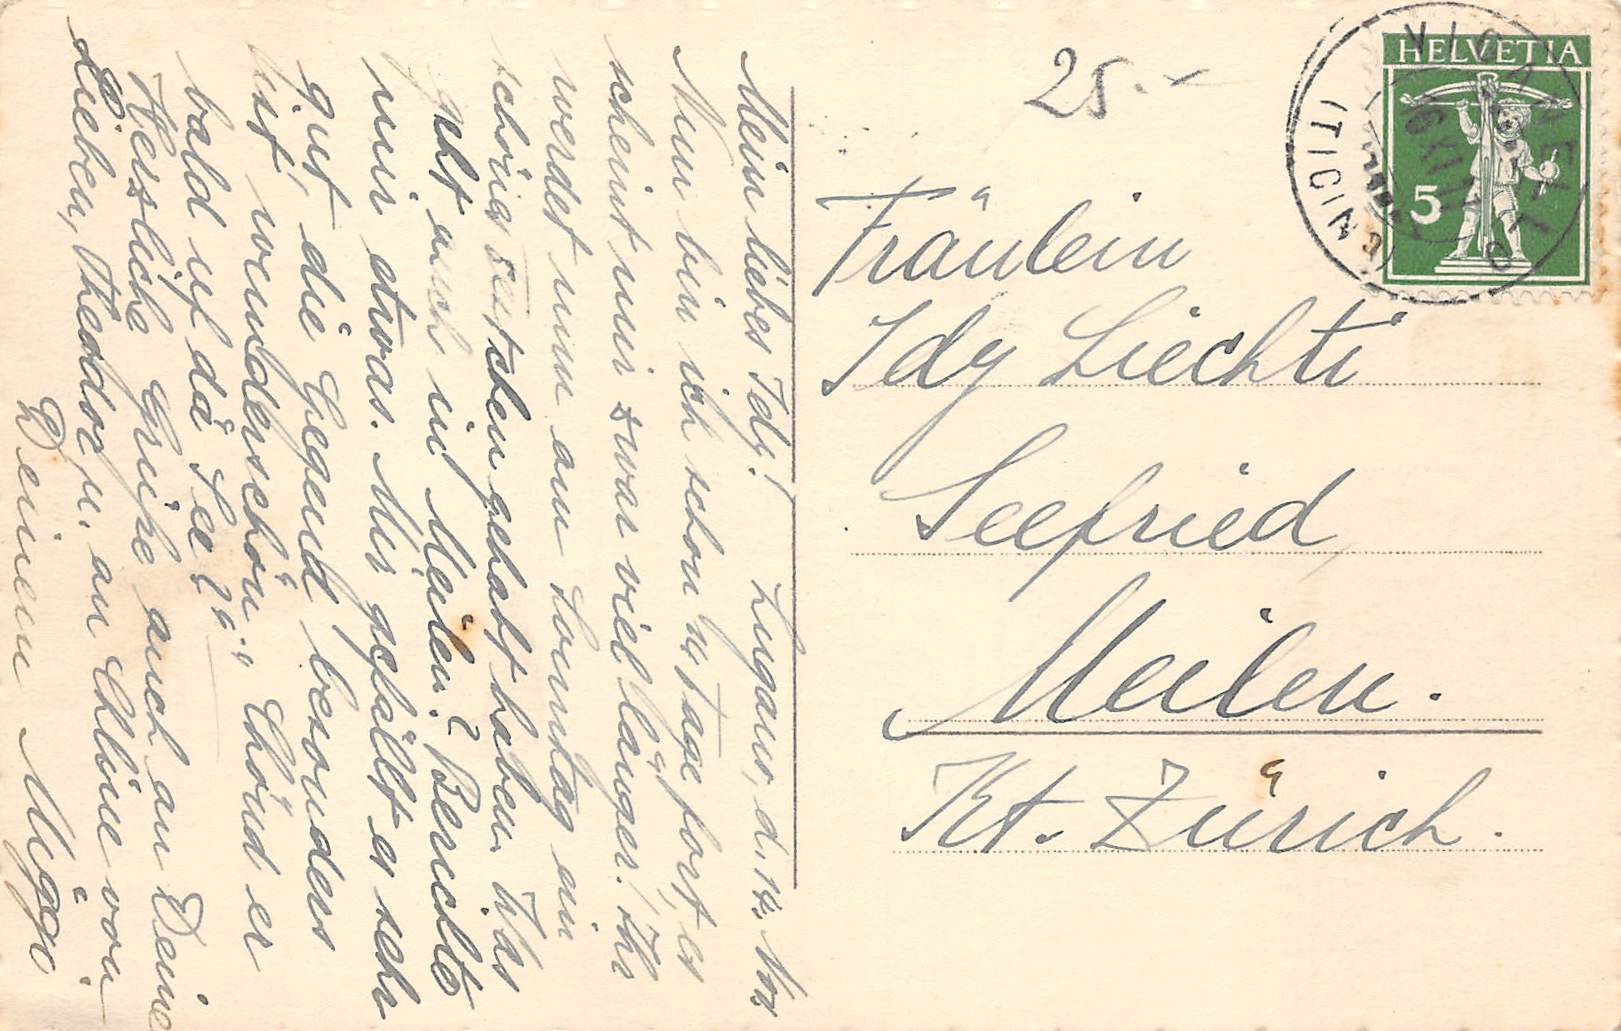 Mein liebes Idy! Lugano, d. 14. Nov.
Nun bin ich schon 14 Tage fort, es
scheint mir zwar viel länger! Ihr
werdet nun am Sonntag ein
schönes Festchen gehabt haben. Was
geht auch in Meilen? Berichte
mir etwas. Mir gefällt es sehr
gut, die Gegend besonders
ist wunderschön. Chönd er
bald uf dä See?
Herzliche Grüße auch an Deine
Lieben, Theodor u. an Albine von
Deinem Miggi
25.-
Fräulein
Idy Liechti
Seefried
Meilen.
Kt. Zürich.
HELVETIA
5
VIGANELLO
(TICINO)